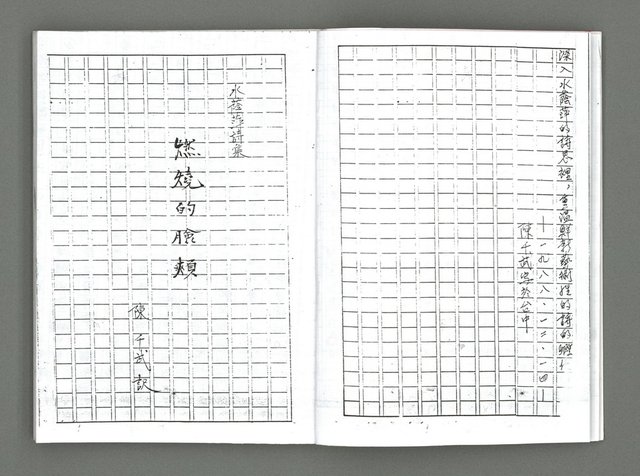 深入水蔭萍的詩思裡，重溫鮮新藝術性的詩的
—一九八八·一二·一四—
陳千武寫於台中
水蔭萍詩集
燃燒的臉頰
陳千武訳